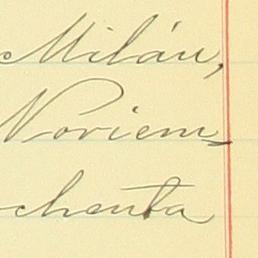 Milán,
Noviem-
chenta